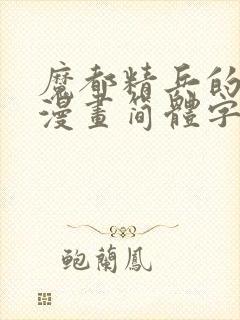 魔都精兵的
漫畫簡體字
鮑蘭鳳